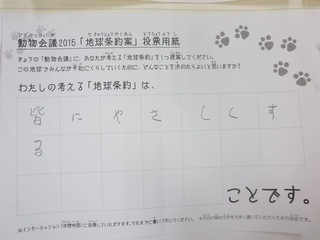 動物会議2015「地球条約案」投票用紙
きょうの「動物会議」に、あなたが考える「地球条約」を1つ提案してください。
この地球でみんなが平和にくらしていくために、どんなことを決めたらよいと思いますか?
わたしの考える「地球条約」は、
皆にやさしくす
る
ことです。
※インターミッション(休憩時間)に回収していただきます。それまでに書いておいてください。